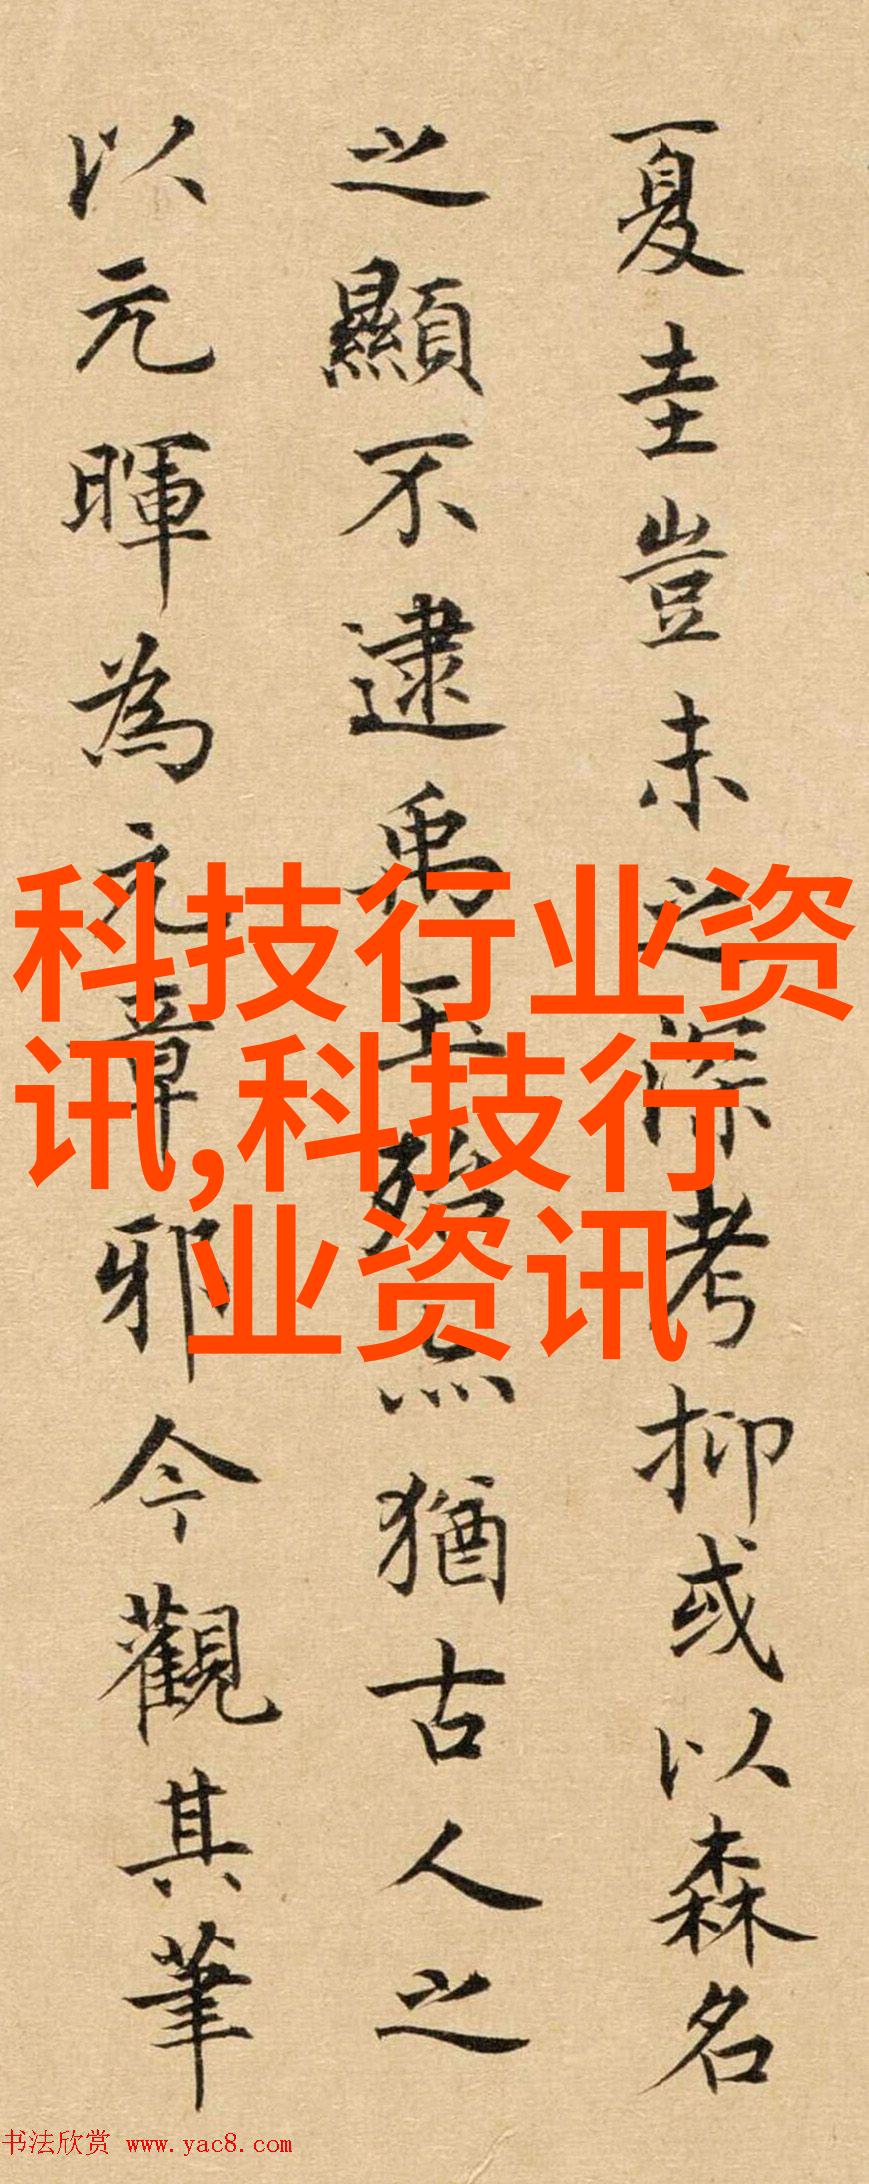 夏圭豈未之深考抑或以森名
之顯不逮禹玉殆亦猶古人之
以元暉為元章邪今觀其筆
科技行业资
讯,科技行
业资讯
书法欣赏 www.yac8.com